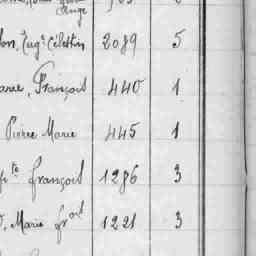 Ange
Eug. Célestin 2089 5
François 440 1
Pierre Marie 445 1
pte François 1286 3
Marie Frois 1221 3